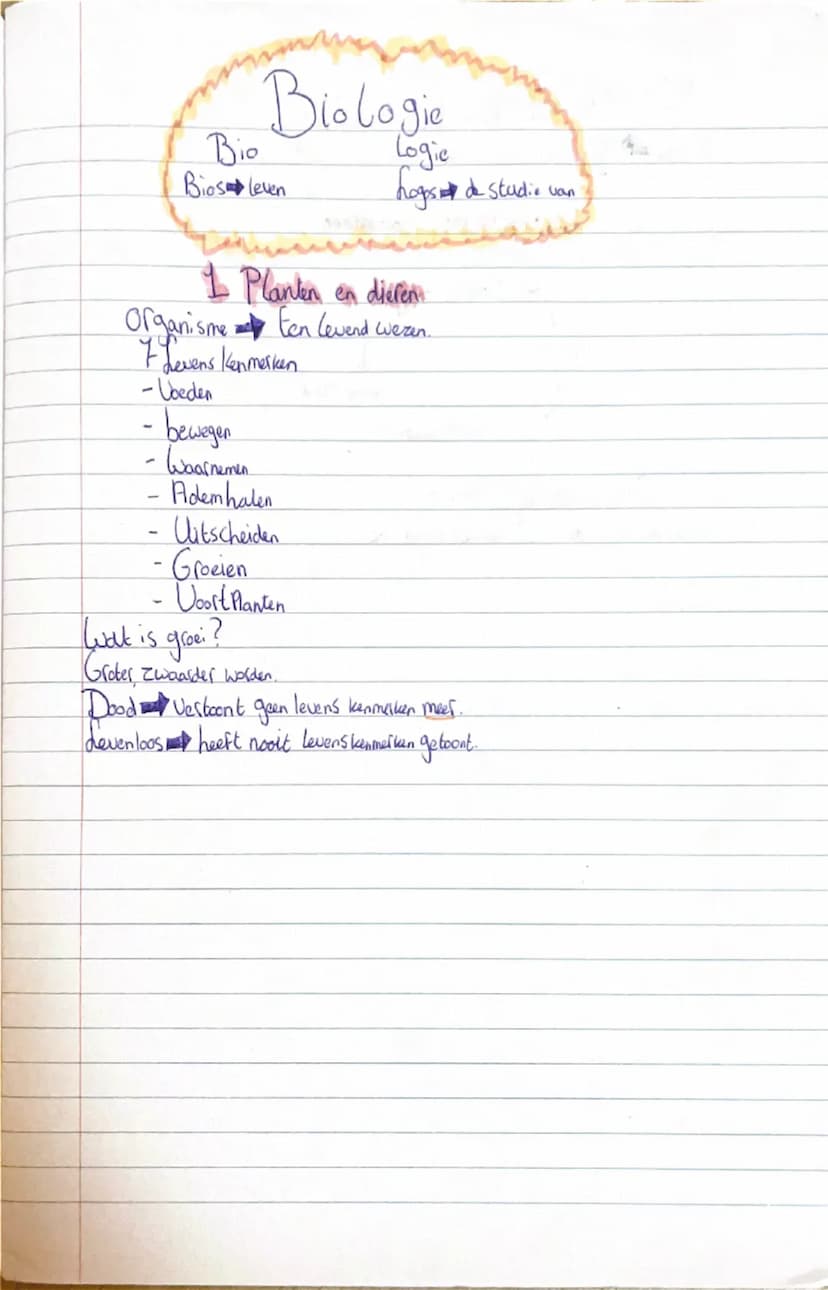 Biologie
Bio Logie
Bios➡leven Logs➡de studie van
1 Planten en dieren
Organisme ➡ Een levend wezen.
7 Levens kenmerken
- Voeden
- bewegen
- Waarnemen
- Ademhalen
- Uitscheiden
- Groeien
- VoortPlanten
Wat is groei?
Groter, zwaarder worden.
Dood ➡ Vertoont geen levens kenmerken meer.
Levenloos ➡ heeft nooit levenskenmerken getoont.